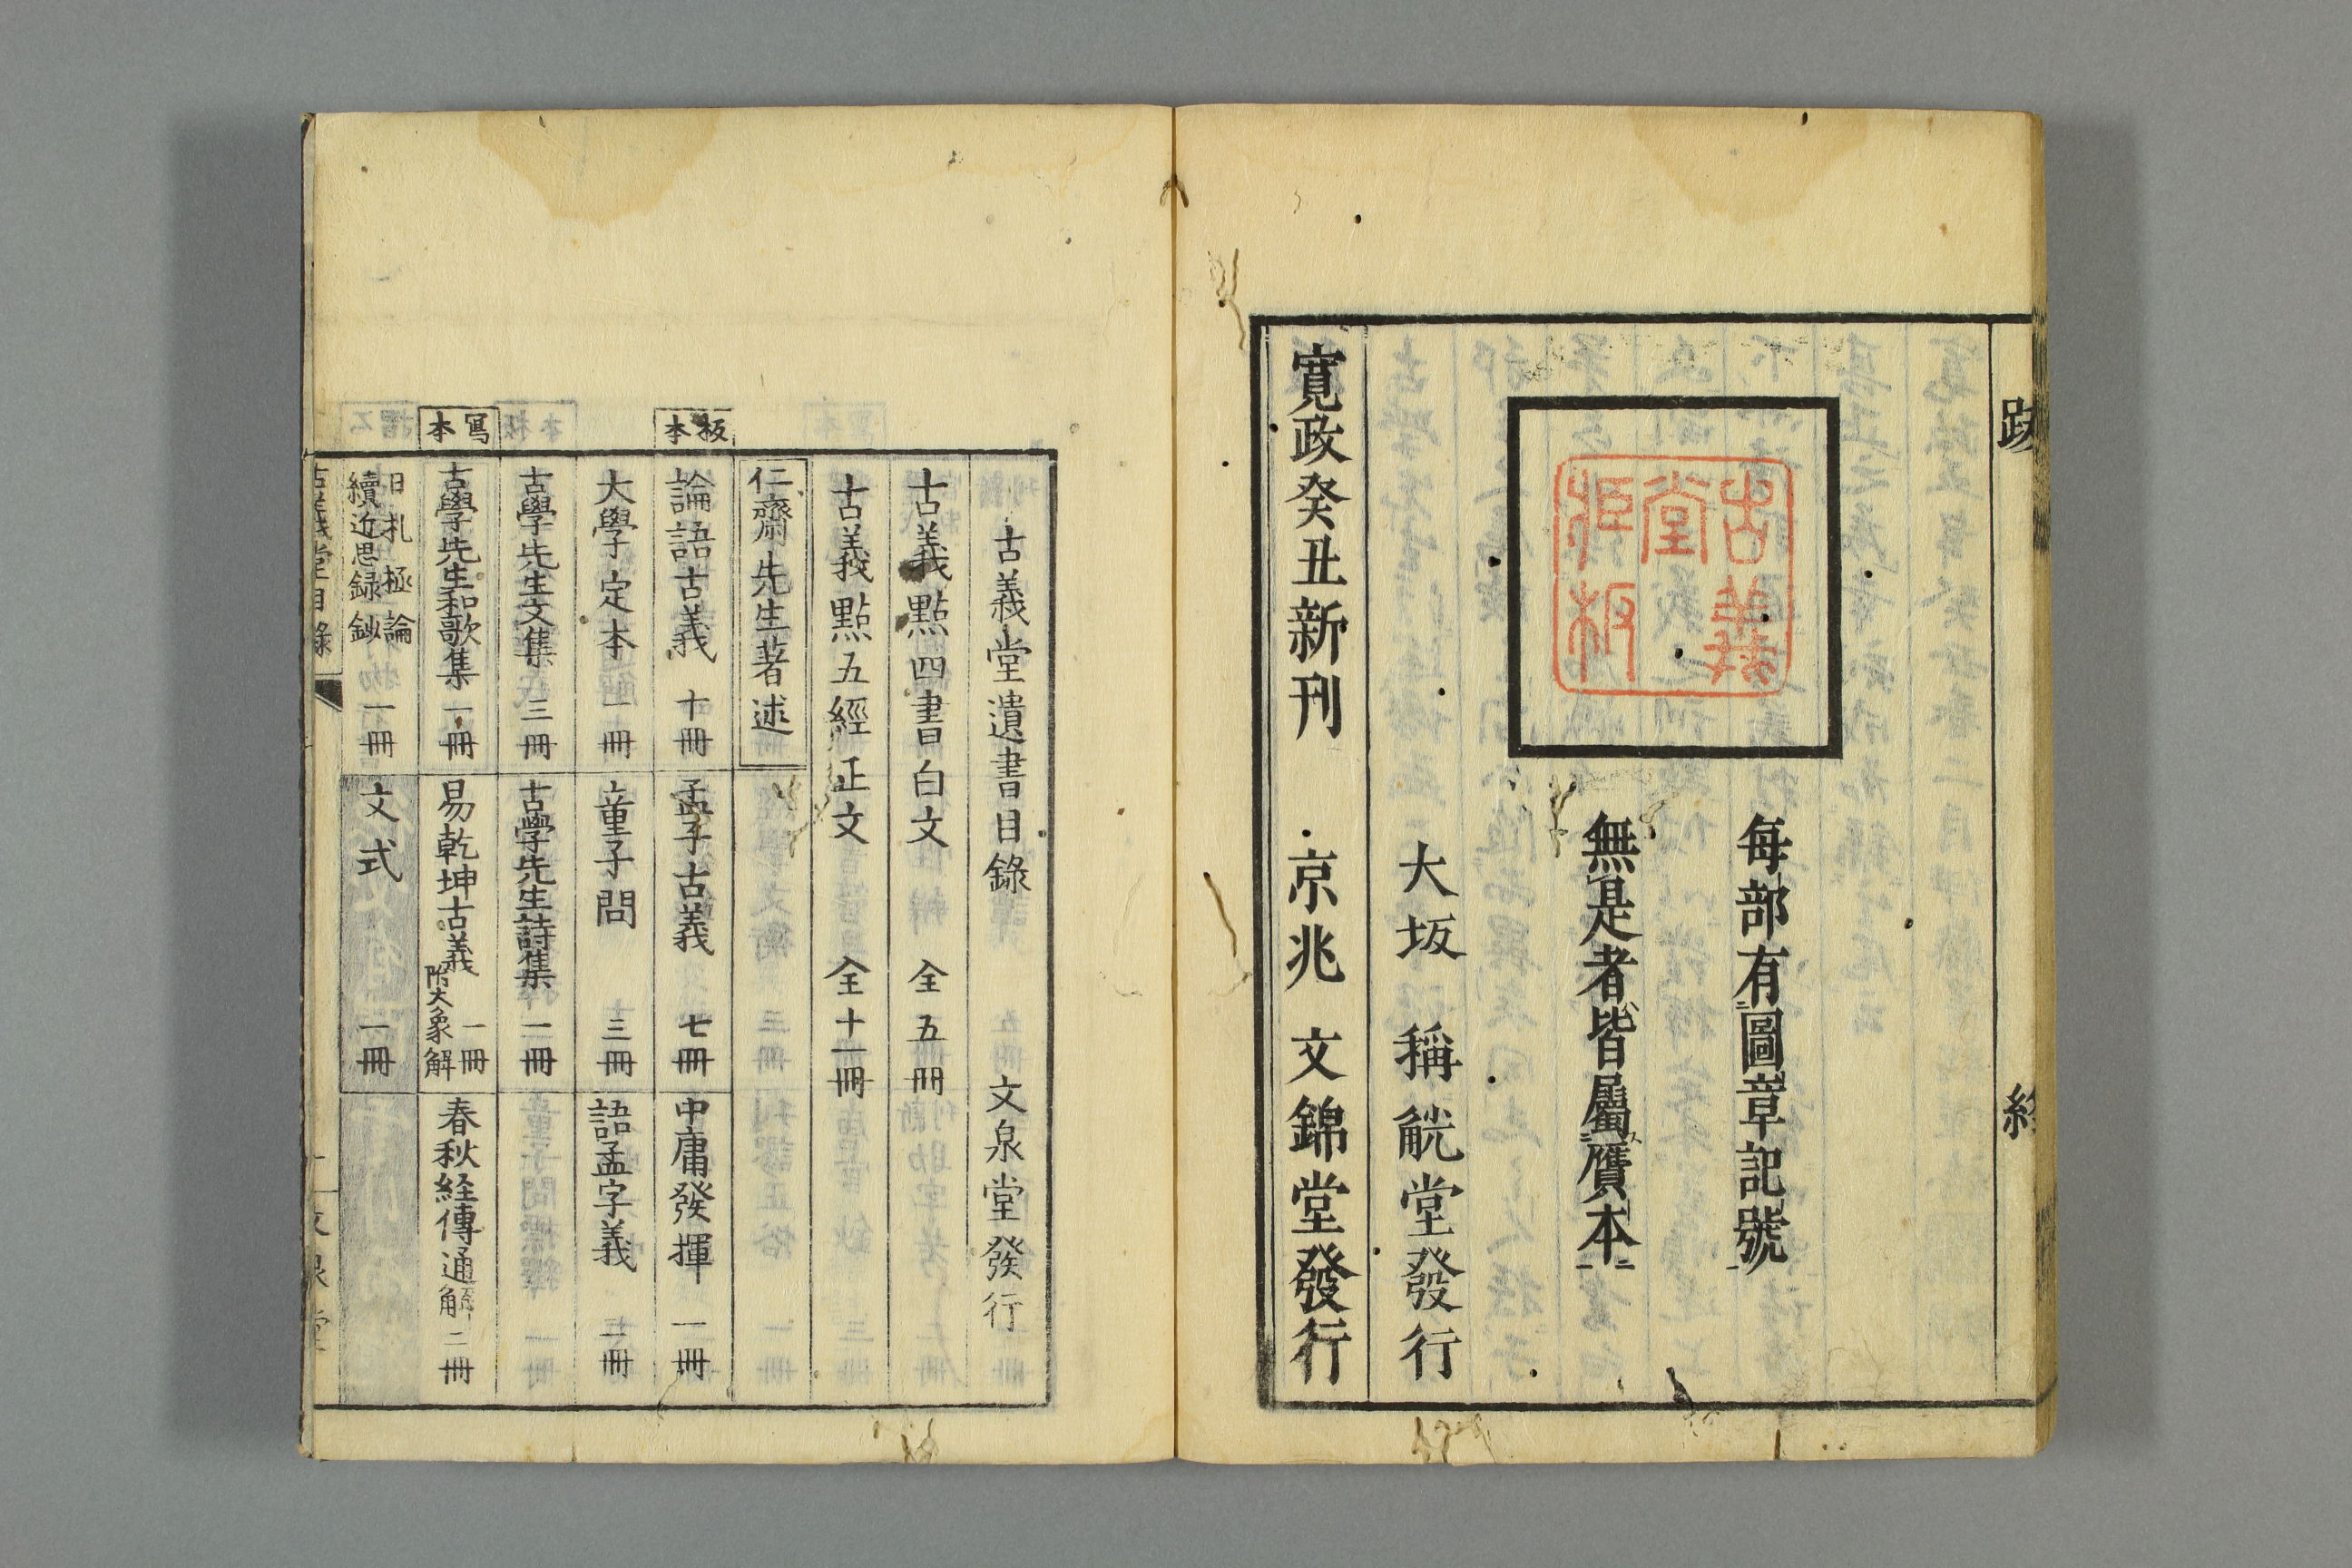 跋
終
古義
堂
板
每部有圖章記號
無是者皆屬贋本
大坂 稱觥堂發行
寛政癸丑新刊 京兆 文錦堂發行
古義堂遺書目錄 文泉堂發行
古義點四書白文 全五冊
古義點五經正文 全十一冊
仁齋先生著述
板本
論語古義 十冊
孟子古義 七冊
中庸發揮 一冊
大學定本 一冊
童子問 三冊
語孟字義 二冊
古學先生文集 三冊
古學先生詩集 二冊
寫本
古學先生和歌集 一冊
易乾坤古義 附大象解 一冊
春秋経傳通解 二冊
日札 極論
續近思録鈔 一冊
文式 一冊
古義堂目錄
文泉堂